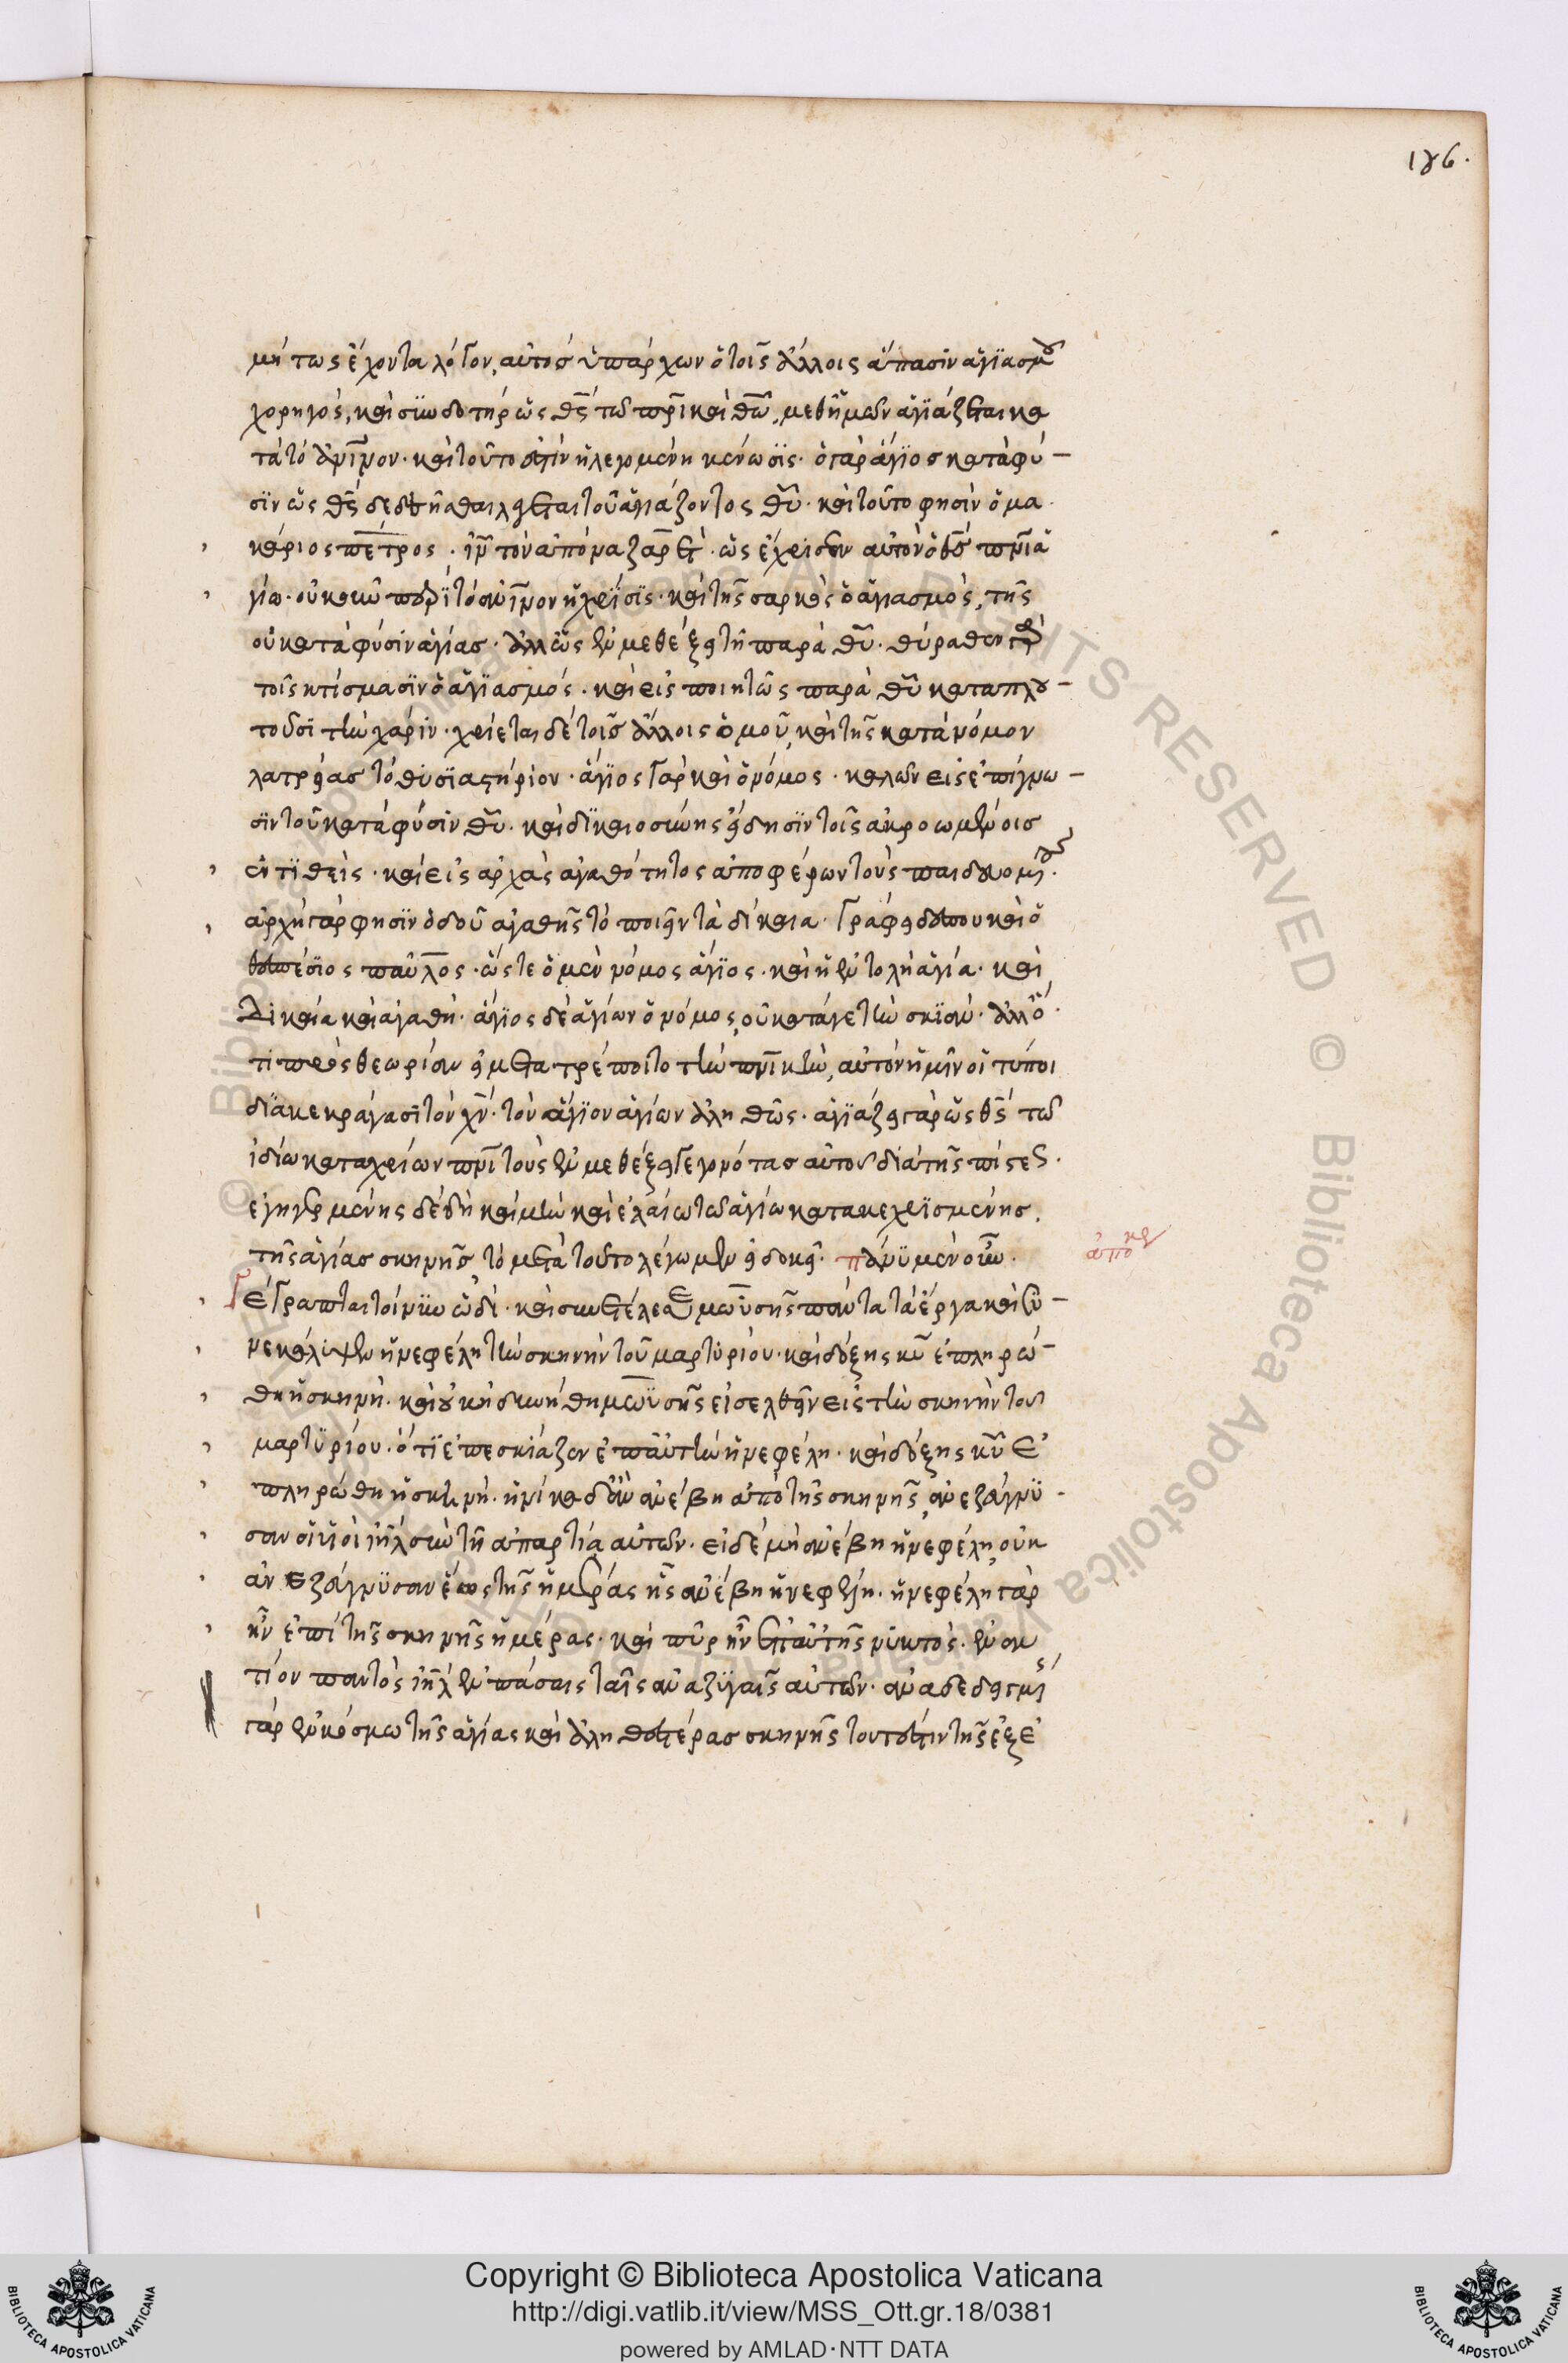 186.
μή τως ἔχοντα λόγον, αὐτὸσ ὑπάρχων ὁ τοῖς ἄλλοις ἅπασιν ἁγϊασμοῦ
χορηγός, καὶ σὺν δοτὴρ ὡς θς τῶ πρὶ καὶ θῶ, μεθ ἡμῶν ἁγϊάζεται κα
τὰ τὸ ἀνινον· καὶ τοῦτο ἐστὶν ἡ λεγομένη κένωσϊς· ὁ γὰρ ἅγϊοσ κατὰ φύ-
σϊν ὡς θς λέγεται τοῦ ἁγιάζοντος θῦ· καὶ τοῦτο φησὶν ὁ μα
κάριος πέτρος· ιν τὸν ἀπὸ ναζαρετ· ὡς ἔχρισεν αὐτὸν ὁ θς πνι ἁ
γίω· οὐκοῦν περὶ τὸ ἀνινον ἡ χρίσϊς· καὶ τῆς σαρκὸς ὁ ἁγιασμὸς, τῆς
οὐ κατὰ φύσιν ἁγίας· ἀλλ ὡς ἐν μεθέξει τῆ παρὰ θῦ· θύραθεν γὰρ
τοῖς κτίσμασϊν ὁ ἁγϊασμός· καὶ εἰσποιητῶς παρὰ θῦ καταπλου-
τοῦσι τὴν χάριν· χρίεται δὲ τοῖς ἄλλοις ὁμοῦ, καὶ τῆς κατὰ νόμον
λατρείας τὸ θυσϊαστήριον· ἅγϊος γὰρ καὶ ὁ νόμος· καλῶν εἰς ἐπίγνω-
σϊν τοῦ κατὰ φύσιν θῦ· καὶ δϊκαιοσύνης εἴδησϊν τοῖς ἀκροωμένοισ
ἐντϊθεὶς· καὶ εἰς ἀρχὰς ἀγαθότητος ἀποφέρων τοὺς παιδαγωγουμένους·
ἀρχὴ γὰρ φησὶν ὁδοῦ ἀγαθῆς τὸ ποιεῖν τὰ δίκαια· γράφει δέ που καὶ ὁ
θεσπέσϊος παῦλος· ὥστε ὁ μὲν νόμος ἅγϊος· καὶ ἡ ἐντολὴ ἁγία· καὶ
δικαία καὶ ἀγαθή· ἅγϊος δὲ ἁγίων ὁ νόμος, οὐ κατά γε τὴν σκϊὰν· ἀλλ ὅ
τι πρὸς θεωρίαν εἰ μετατρέποιτο τὴν πνικὴν, αὐτὸν ἡμῖν οἱ τύποι
δϊακεκράγασϊ τὸν χν· τὸν ἅγϊον ἁγίων ἀληθῶς· ἁγϊάζει γὰρ ὡς θς τῶ
ἰδίω καταχρίων πνι τοὺς ἐν μεθέξει γεγονότας αὐτοῦ διὰ τῆς πίστεως·
ἐγηγερμένης δὲ δὴ καὶ μὴν καὶ ἐλαίω τῶ ἁγίω κατακεχρϊσμένησ,
τῆς ἁγίας σκηνῆς τὸ μετὰ τοῦτο λέγωμεν εἰ δοκεῖ· πάνυ μὲν οὖν·
γέγραπται τοίνυν ὡδί· καὶ συνετέλεσε μωϋσῆς πάντα τὰ ἔργα καὶ ἐ-
νεκάλυψεν ἡ νεφέλη τὴν σκηνὴν τοῦ μαρτυρίου· καὶ δόξης κυ ἐπληρώ-
θη ἡ σκηνή· καὶ οὐκ ἠδυνήθη μωϋσῆς εἰσελθεῖν εἰς τὴν σκηνὴν τοῦ
μαρτϋρίου· ὅτϊ ἐπεσκίαζεν ἐπ αὐτὴν ἡ νεφέλη· καὶ δόξης κυ ἐ
πληρώθη ἡ σκηνή· ἡνίκα δ ἂν ἀνέβη ἀπὸ τῆς σκηνῆς, ἀνεζεύγνϋ-
σαν οἱ υἱοὶ ιηλ σὺν τῆ ἀπαρτία αὐτῶν· εἰ δὲ μὴ ἀνέβη ἡ νεφέλη, οὐκ
ἀνεζεύγνϋσαν ἕως τῆς ἡμέρας ἧς ἀνέβη ἡ νεφέλη· ἡ νεφέλη γὰρ
ἦν ἐπὶ τῆς σκηνῆς ἡμέρας· καὶ πῦρ ἦν ἐπ αὐτῆς νυκτὸς· ἐναν
τίον παντὸς ιηλ ἐν πάσαις ταῖς ἀναζϋγαῖς αὐτῶν· ἀναδεδειγμένης
γὰρ ἐν κόσμω τῆς ἁγίας καὶ ἀληθεστέρας σκηνῆς τουτέστιν τῆς ἐξ ἐ
Copyright © Biblioteca Apostolica Vaticana
http://digi.vatlib.it/view/MSS_Ott.gr.18/0381
powered by AMLAD·NTT DATA